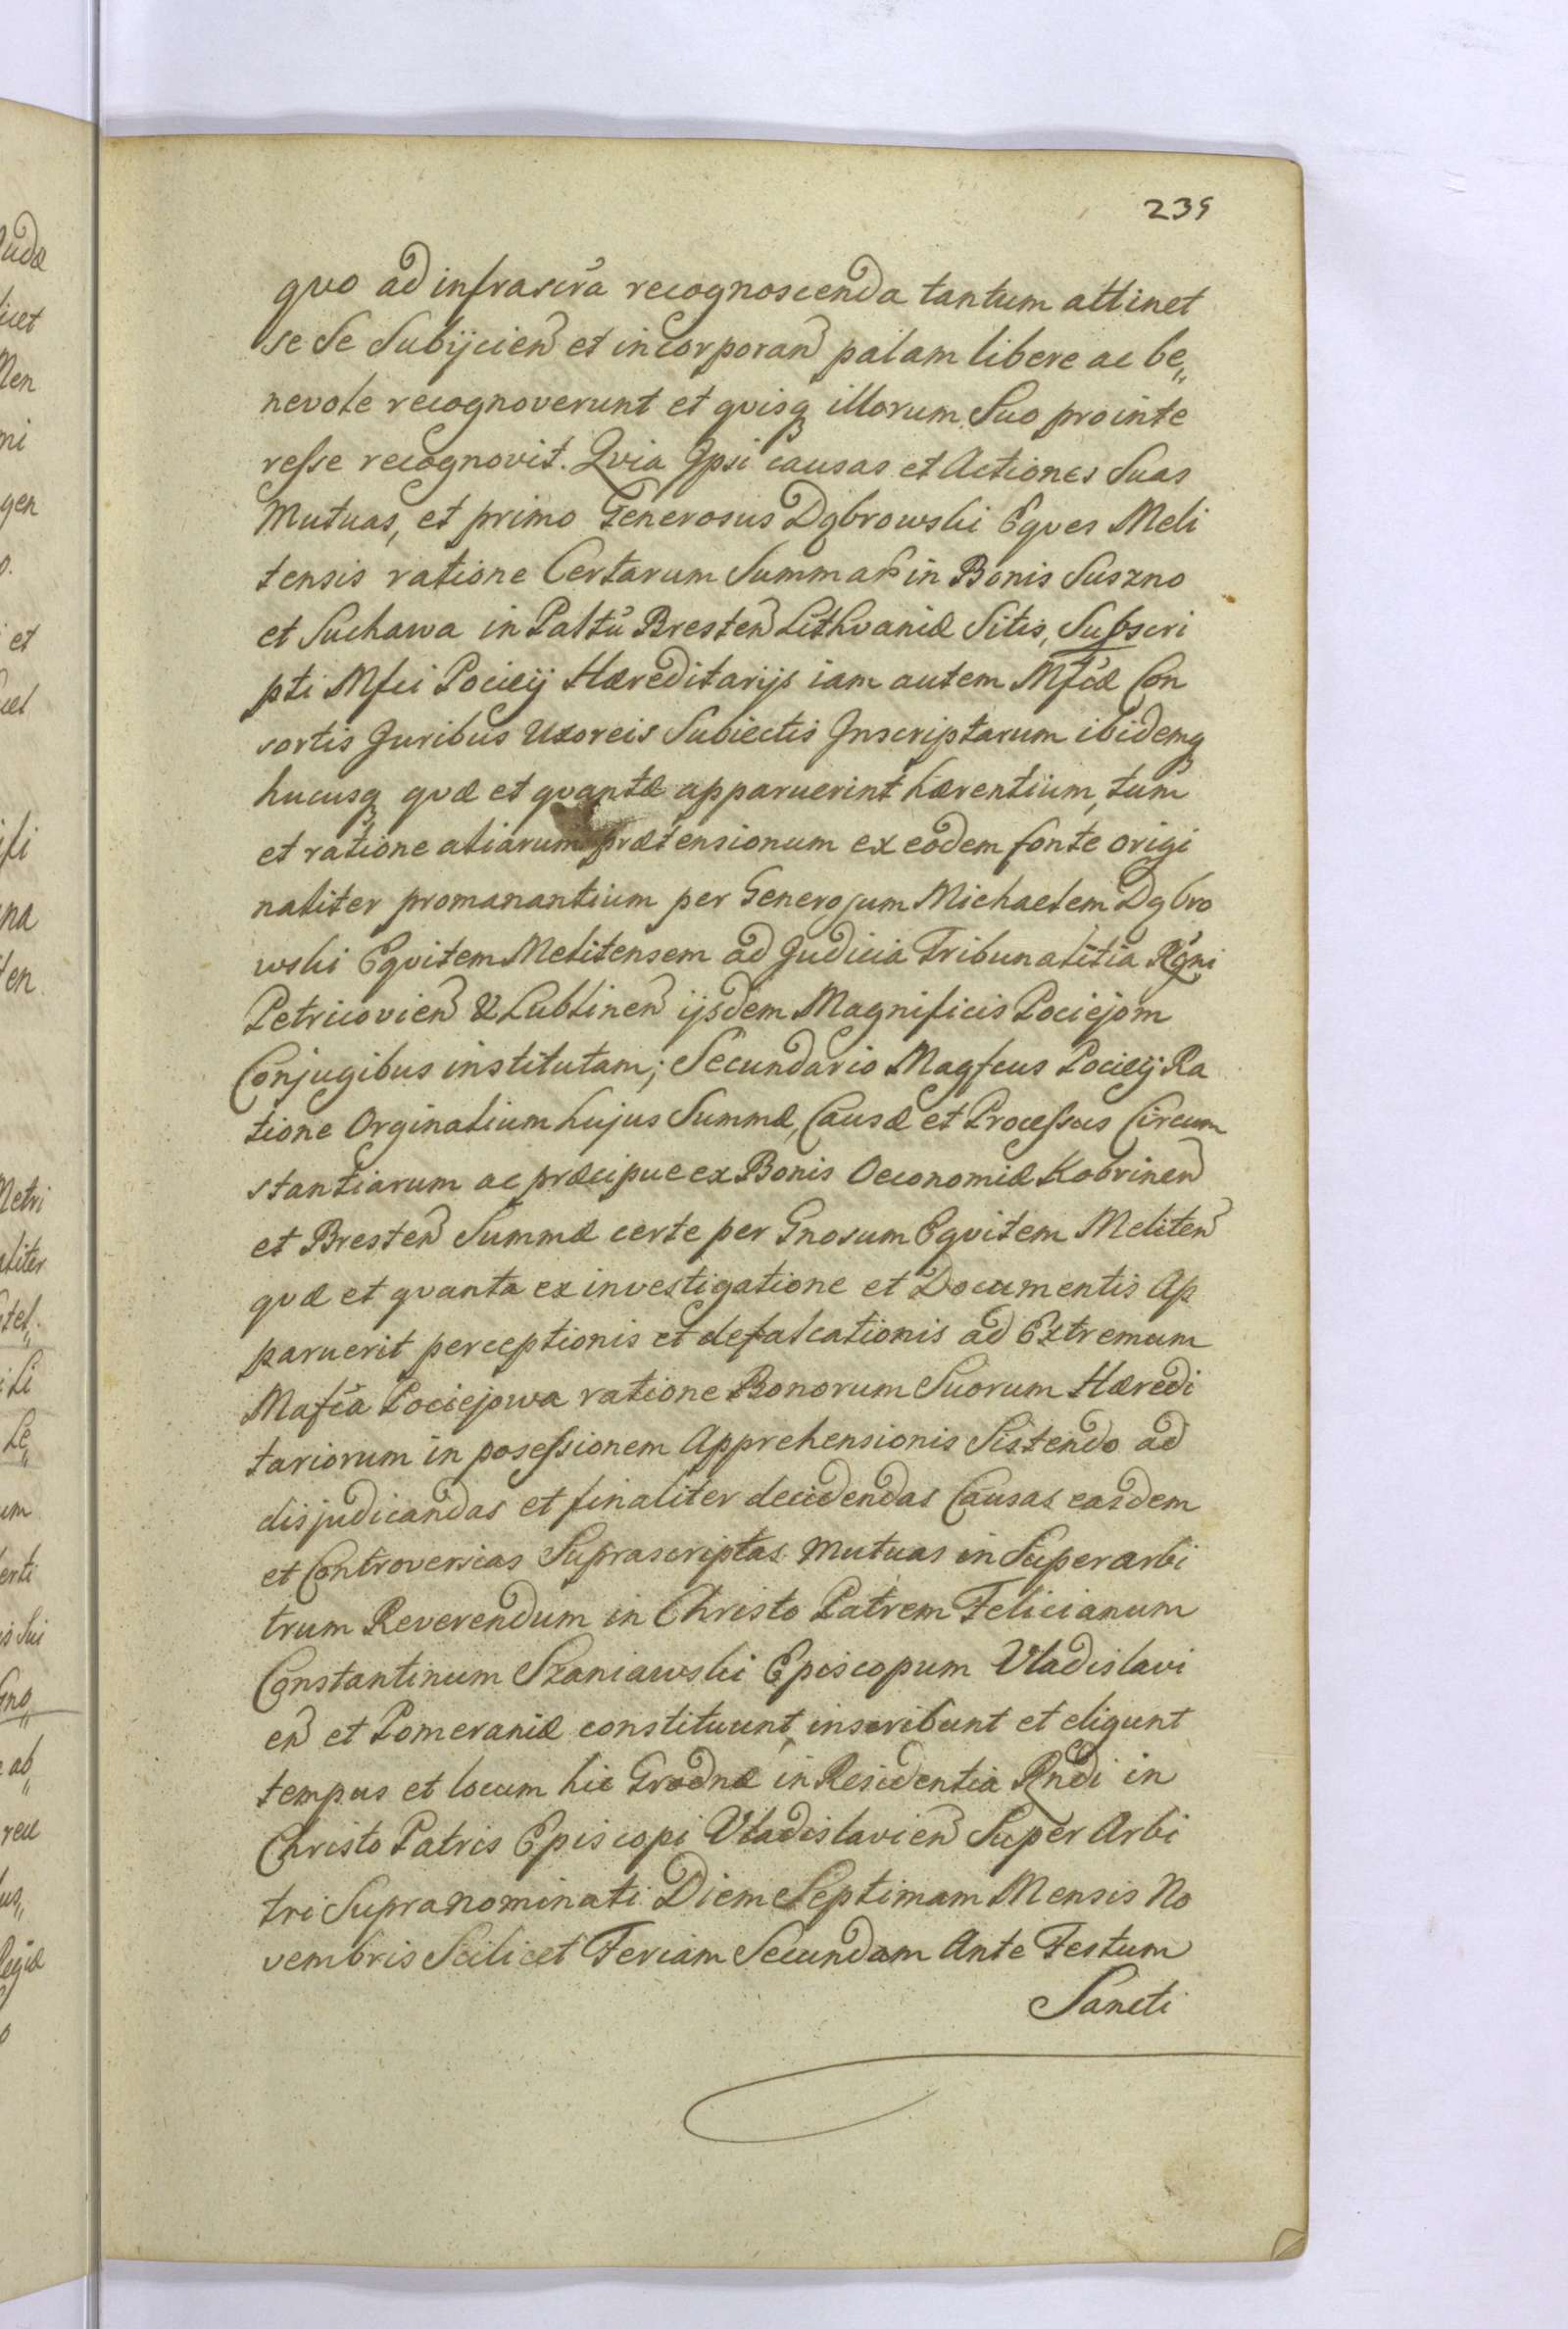 239
quo ad infrascra recognoscenda tantum attinet
se se Subijcien et incorporan palam libere ac be„
nevole recognoverunt et quisq illorum Suo pro inte
resse recognovit. Qvia Ipsi causas et Actiones Suas
Mutuas, et primo Generosus Dąbrowski Eqves Meli
tensis ratione Certarum Summar in Bonis Suszno
et Suchawa in Paltu Bresten Lithvaniæ Sitis, Subscri
pti Mfci Pociey Hæreditarijs iam autem Mfcæ Con
sortis Juribus Uxoreis Subiectis Inscriptarum ibidemq
hucusq qvæ et qvantæ apparuerint hærentium, tum
et ratione aliarum prætensionum ex eodem fonte origi
naliter promanantium per Generosum Michaelem Dąbro
wski Eqvitem Melitensem ad Judicia Tribunalitia Rgni
Petricovien & Lublinen ijsdem Magnificis Pociejom
Conjugibus institutam; Secundario Magfcus Pociey Ra
tione Orginalium hujus Summæ, Causæ et Processus Circum
stantiarum ac præcipue ex Bonis Oeconomiæ Kobrinen
et Bresten Summæ certe per Gnosum Eqvitem Meliten
qvæ et qvanta ex investigatione et Documentis Ap
paruerit perceptionis et defalcationis ad Extremum
Mafca Pociejowa ratione Bonorum Suorum Hæredi
tariorum in posessionem Apprehensionis Sistendo ad
disjudicandas et finaliter decidendas Causas easdem
et Controversias Suprascriptas mutuas in Superarbi
trum Reverendum in Christo Patrem Felicianum
Constantinum Szaniawski Episcopum Vladislavi
en et Pomeraniæ constituunt, inscribunt et eligunt
tempus et locum hic Grodnæ in Residentia Rndi in
Christo Patris Episcopi Vladislavien Super Arbi
tri Supranominati Diem Septimam Mensis No
vembris Scilicet Feriam Secundam Ante Festum
Sancti